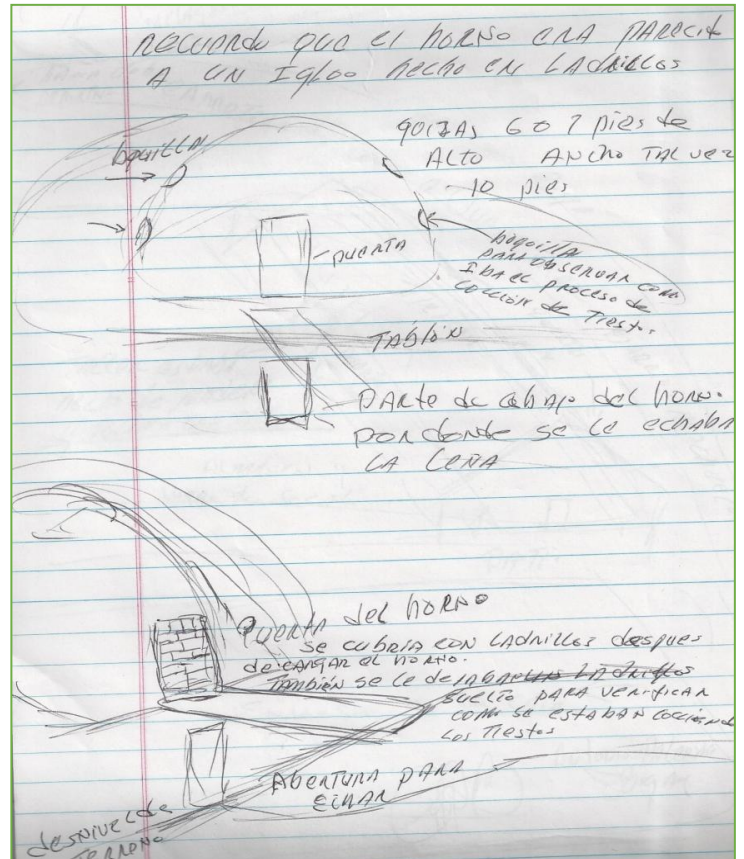 RECUERDO QUE EL HORNO ERA PARECID
A UN IGLOO HECHO EN LADRILLOS
QUIZAS 6 O 7 PIES DE
ALTO ANCHO TAL VEZ
10 PIES
boquilla
PUERTA
boquilla
PARA OBSERVAR COMO
IBA EL PROCESO DE
COCCIÓN DE TIESTOS
TABLÓN
PARTE DE ABAJO DEL HORNO
POR DONDE SE LE ECHABA
LA LEÑA
PUERTA DEL HORNO
SE CUBRIA CON LADRILLOS DESPUES
DE CARGAR EL HORNO.
TAMBIÉN SE LE DEJABA LADRILLOS
SUELTO PARA VERIFICAR
COMO SE ESTABAN COCIENDO
LOS TIESTOS
ABERTURA PARA
ECHAR
DESNIVEL DE
TERRENO